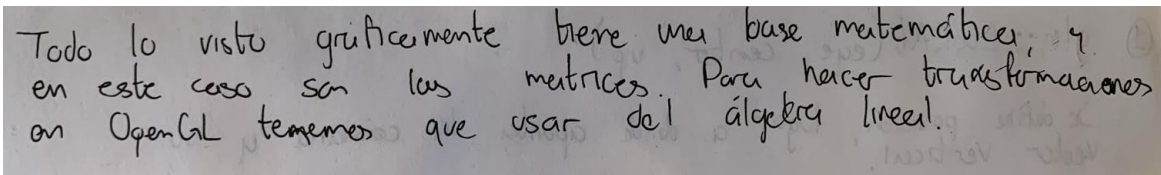 Todo lo visto gráficamente tiene una base matemática, y
en este caso son las matrices. Para hacer transformaciones
en OpenGL tenemos que usar del álgebra lineal.